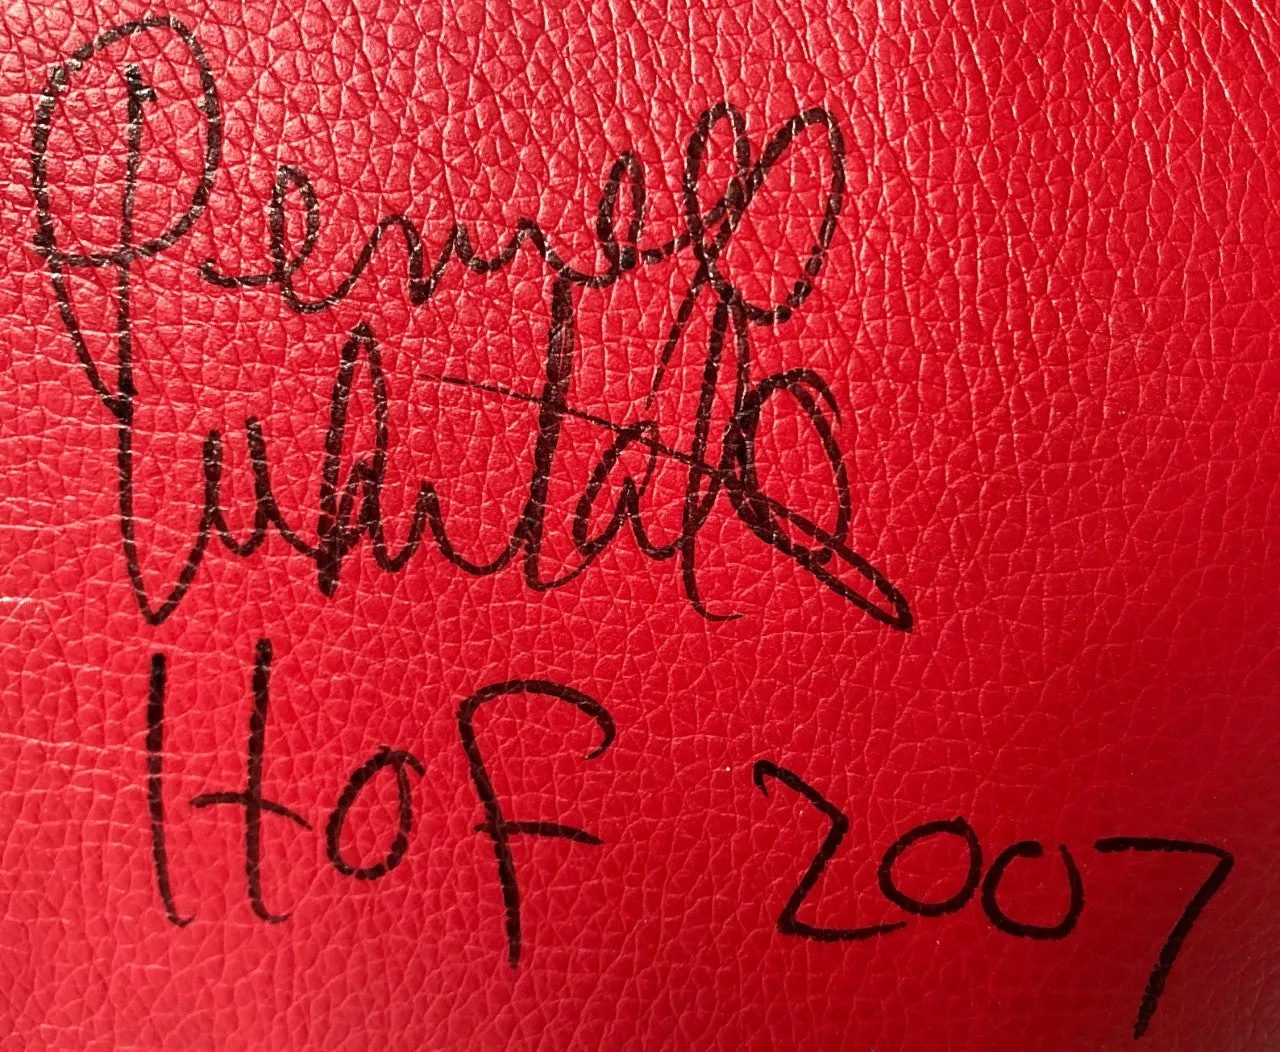 Pernell
Whitaker
HOF 2007